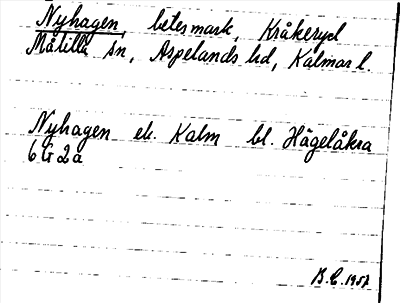 Nyhagen, betesmark, Kråkeryd
Målilla sn, Aspelands hd, Kalmar l.
Nyhagen ek. Kalm bl. Hägelåkra
6 G 2 a
B.E. 1957